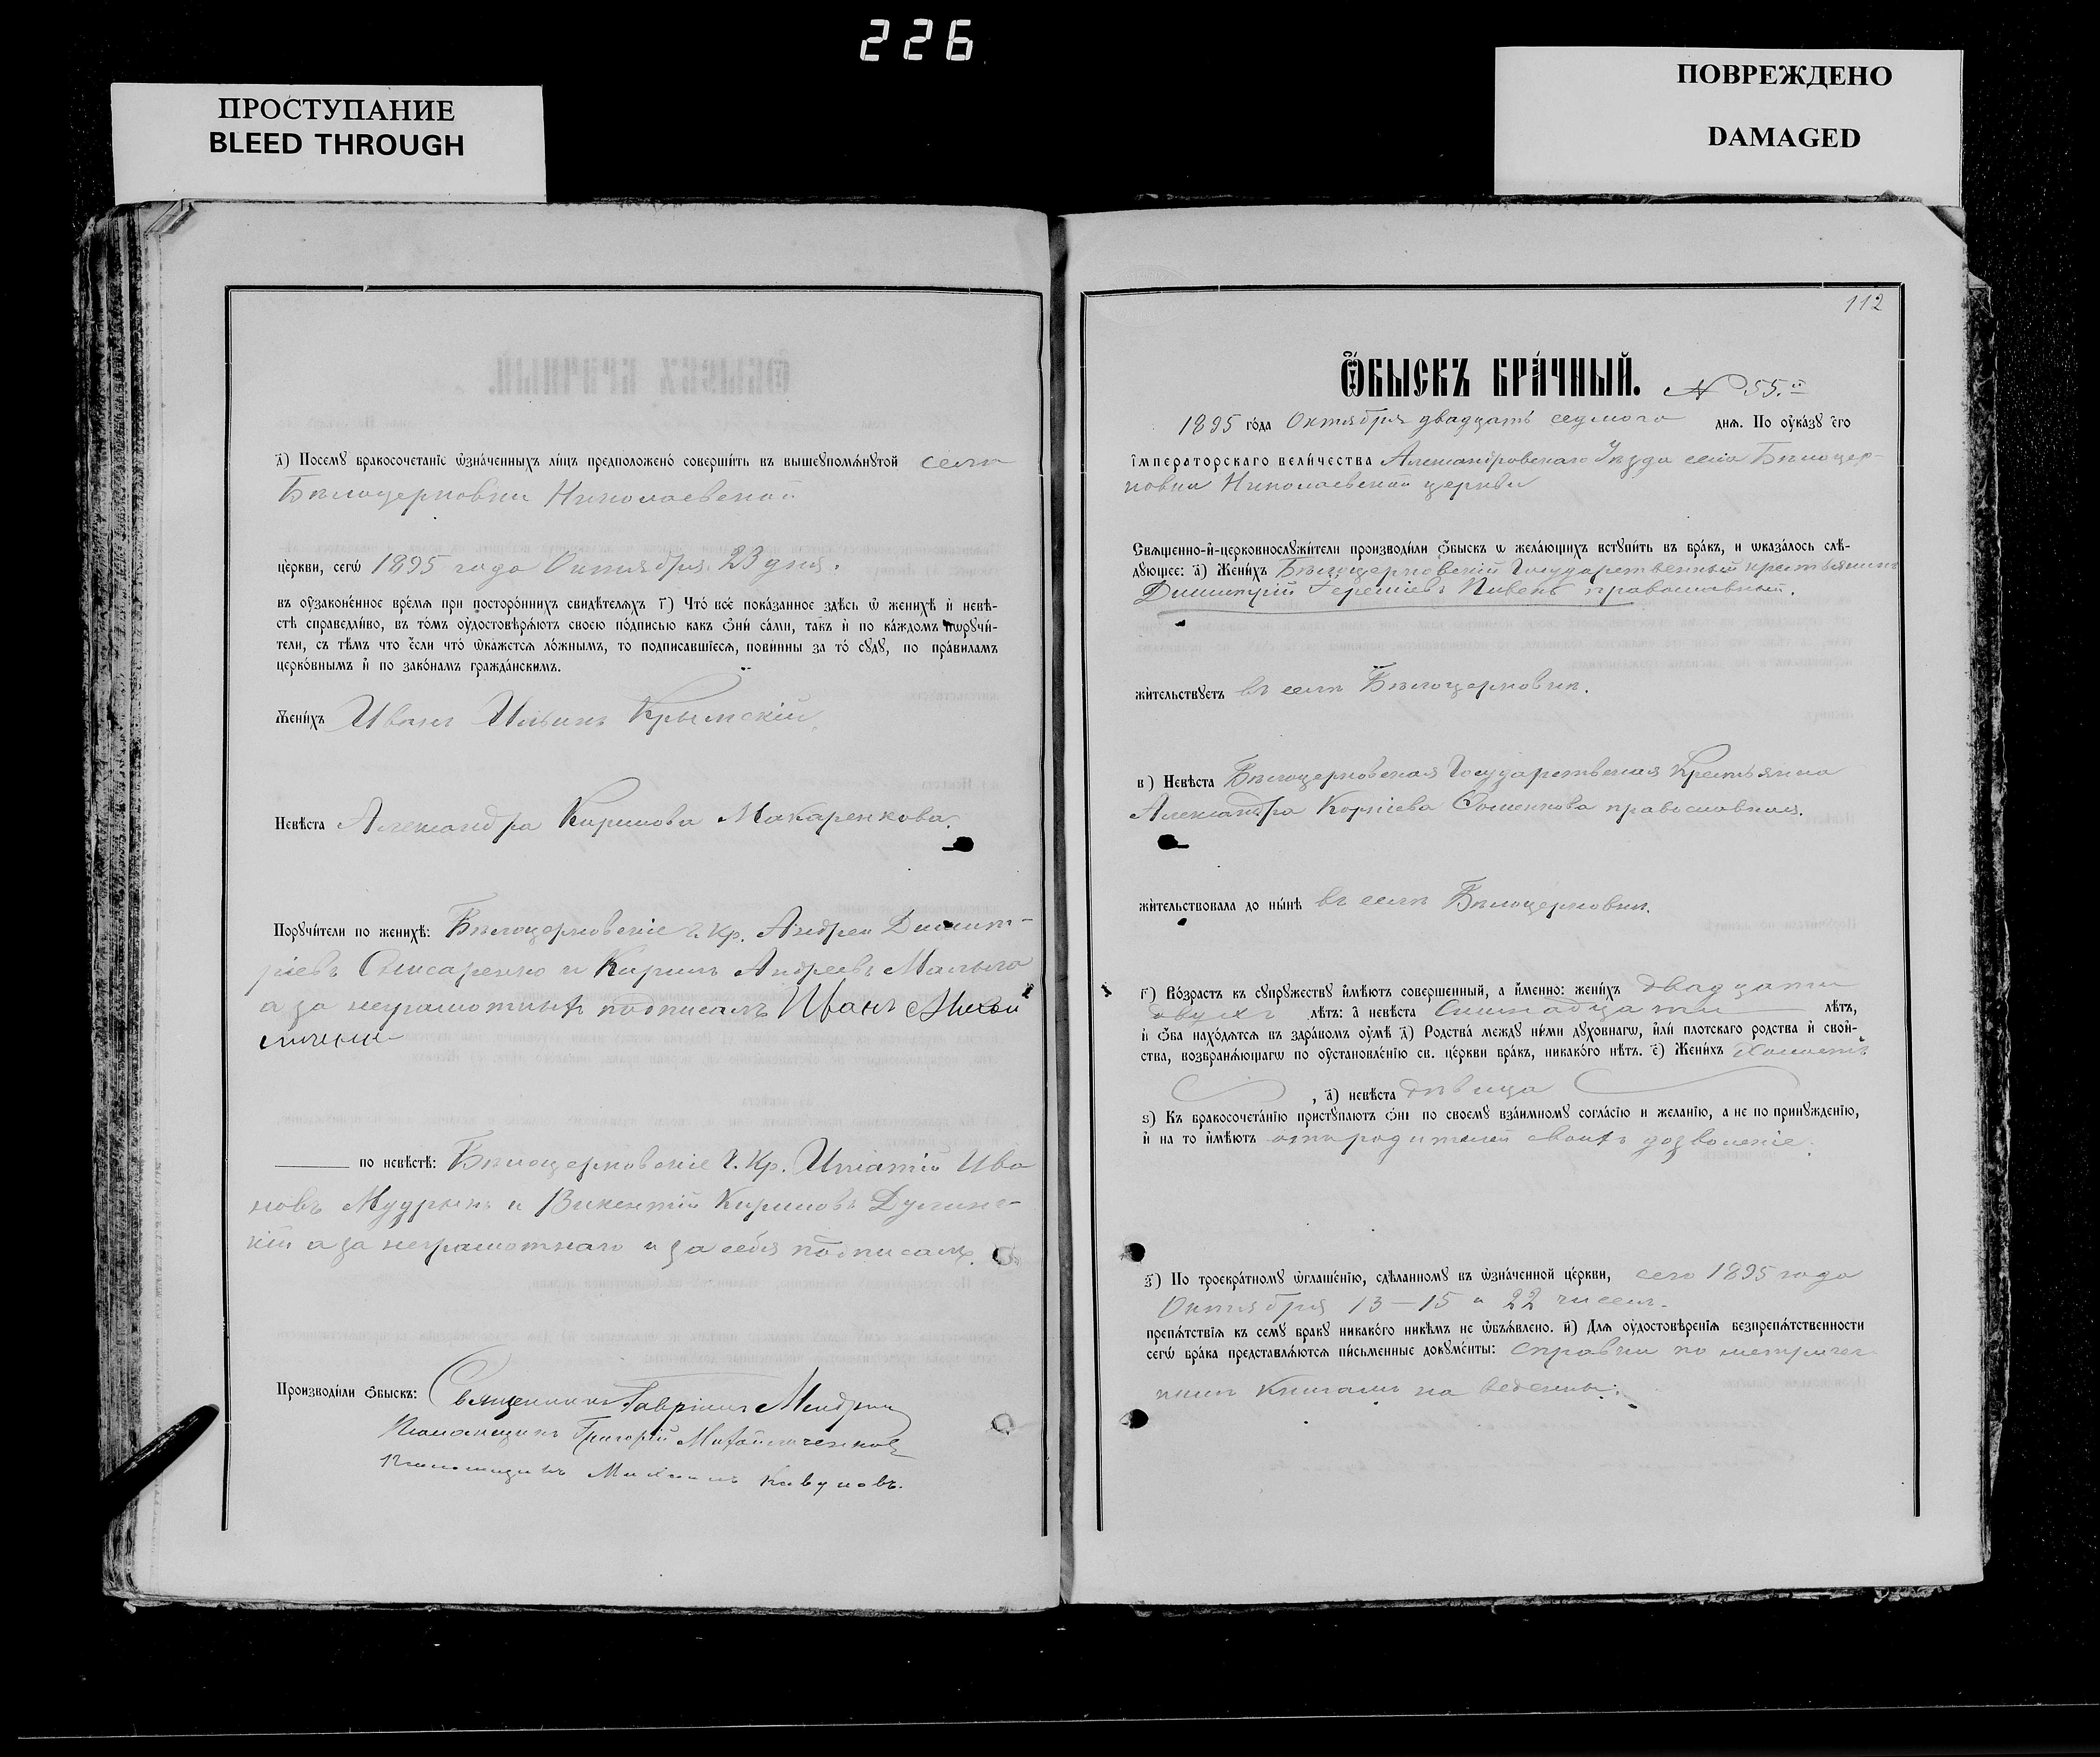 226
ПРОСТУПАНИЕ
BLEED THROUGH
ПОВРЕЖДЕНО
DAMAGED
д҃) Посемꙋ бракосочетанїе ѡзна́ченныхъ ли́цъ предположено́ соверши́ть въ вышеꙋпомѧ́нꙋтой села
Бѣлоцерковки Николаевской
це́ркви, сегѡ̀ 1895 года Октября 23 дня.
въ ᲂу҆зако́ненное вре́мѧ при посторо́ннихъ свидѣ́телѧхъ г҃) Что́ все́ пока́занное здѣ́сь ѡ҆ женихѣ̀ и҆ невѣ́-
стѣ справедли́во, въ то́мъ ᲂу҆достовѣрѧ́ютъ своею по́дписью какъ ѻ҆ни́ са́ми, та́къ и҆ по ка́ждомъ порꙋчи́-
тели, съ тѣ́мъ что є҆́сли что́ ѡ҆ка́жетсѧ ло́жнымъ, то подписавшїесѧ, пови́нны за то́ сꙋдꙋ̀, по пра́виламъ
церко́внымъ и҆ по зако́намъ гражда́нскимъ.
Жени́хъ Иванъ Ильинъ Крымскій
Невѣ́ста Александра Кирилова Макаренкова.
Порꙋчи́тели по женихѣ̀: Бѣлоцерковскіе г. кр. Андрей Димит-
ріевъ Слисаренко и Кирилъ Андреевъ Малыга
а за неграмотныхъ подписалъ Иванъ Михай
личенко
по невѣ́стѣ: Бѣлоцерковскіе г. кр. Ипатій Ива
новъ Мудрыкъ и Викентій Кириловъ Дулинс-
кій а за неграмотнаго и за себя подписалъ.
Производи́ли ѻ҆́быскъ: Священникъ Гавріилъ
Псаломщикъ Григорій Михайличенковъ
Псаломщикъ Михаилъ Кавуновъ.
112
Ѻ҆́БЫСКЪ БРА́ЧНЫЙ. № 55.й
1895 го́да Октября двадцать седмого днѧ. По ᲂу҆ка́зꙋ є҆гѡ̀
і҆мпера́торскаго вели́чества Александровскаго Уѣзда села Бѣлоцер-
ковки Николаевской церкви
Свѧще́нно-и҆-церковнослꙋжи́тели производи́ли ѻ҆́быскъ ѡ жела́ющихъ встꙋпи́ть въ бра́къ, и ѡказа́лось слѣ́-
дꙋющее: а҃) Жени́хъ Бѣлоцерковскій Государственный крестьянинъ
Димитрій Пивень православный.
жи́тельствꙋетъ въ селѣ Бѣлоцерковкѣ.
в҃) Невѣ́ста Бѣлоцерковская Государственая Крестьянка
Александра Корніева православная.
жи́тельствовала до ны́нѣ въ селѣ Бѣлоцерковкѣ.
г҃) Во́зрастъ къ сꙋпрꙋ́жествꙋ и҆мѣ́ютъ соверше́нный, а и҆́менно: жени́хъ двадцати
двухъ лѣ́тъ: а҆ невѣ́ста Семнадцати лѣ́тъ,
и҆ ѻ҆́ба нахо́дѧтсѧ въ здра́вомъ ᲂу҆мѣ̀ д҃) Родства̀ междꙋ ни́ми дꙋхо́внагѡ, и҆лѝ пло́тскаго родства̀ и҆ свой-
ства̀, возбранѧ́ющагѡ по ᲂу҆становле́нїю св. це́ркви бра́къ, никако́го нѣ́тъ. є҃) Жени́хъ Холостъ
, а҃) невѣ́ста дѣвица
ѕ҃) Къ бракосочета́нїю пристꙋпа́ютъ ѻ҆нѝ по своемꙋ̀ взаи́мномꙋ согла́сїю и жела́нїю, а не по принꙋжде́нїю,
и҆ на то и҆мѣ́ютъ отъ родителей своихъ дозволеніе.
з҃) По троекра́тномꙋ ѡ҆глаше́нїю, сдѣ́ланномꙋ въ ѡ҆зна́ченной це́ркви, сего 1895 года
Октября 13—15 и 22 чиселъ.
препѧ́тствїѧ къ семꙋ̀ бра́кꙋ никако́го никѣ́мъ не ѡ҆бъѧ́влено. и҃) Длѧ ᲂу҆достовѣ́ренїѧ безпрепѧ́тственности
сегѡ̀ бра́ка представлѧ́ютсѧ пи́сьменные докꙋме́нты: справки по метричес-
кимъ книгамъ на ведены.